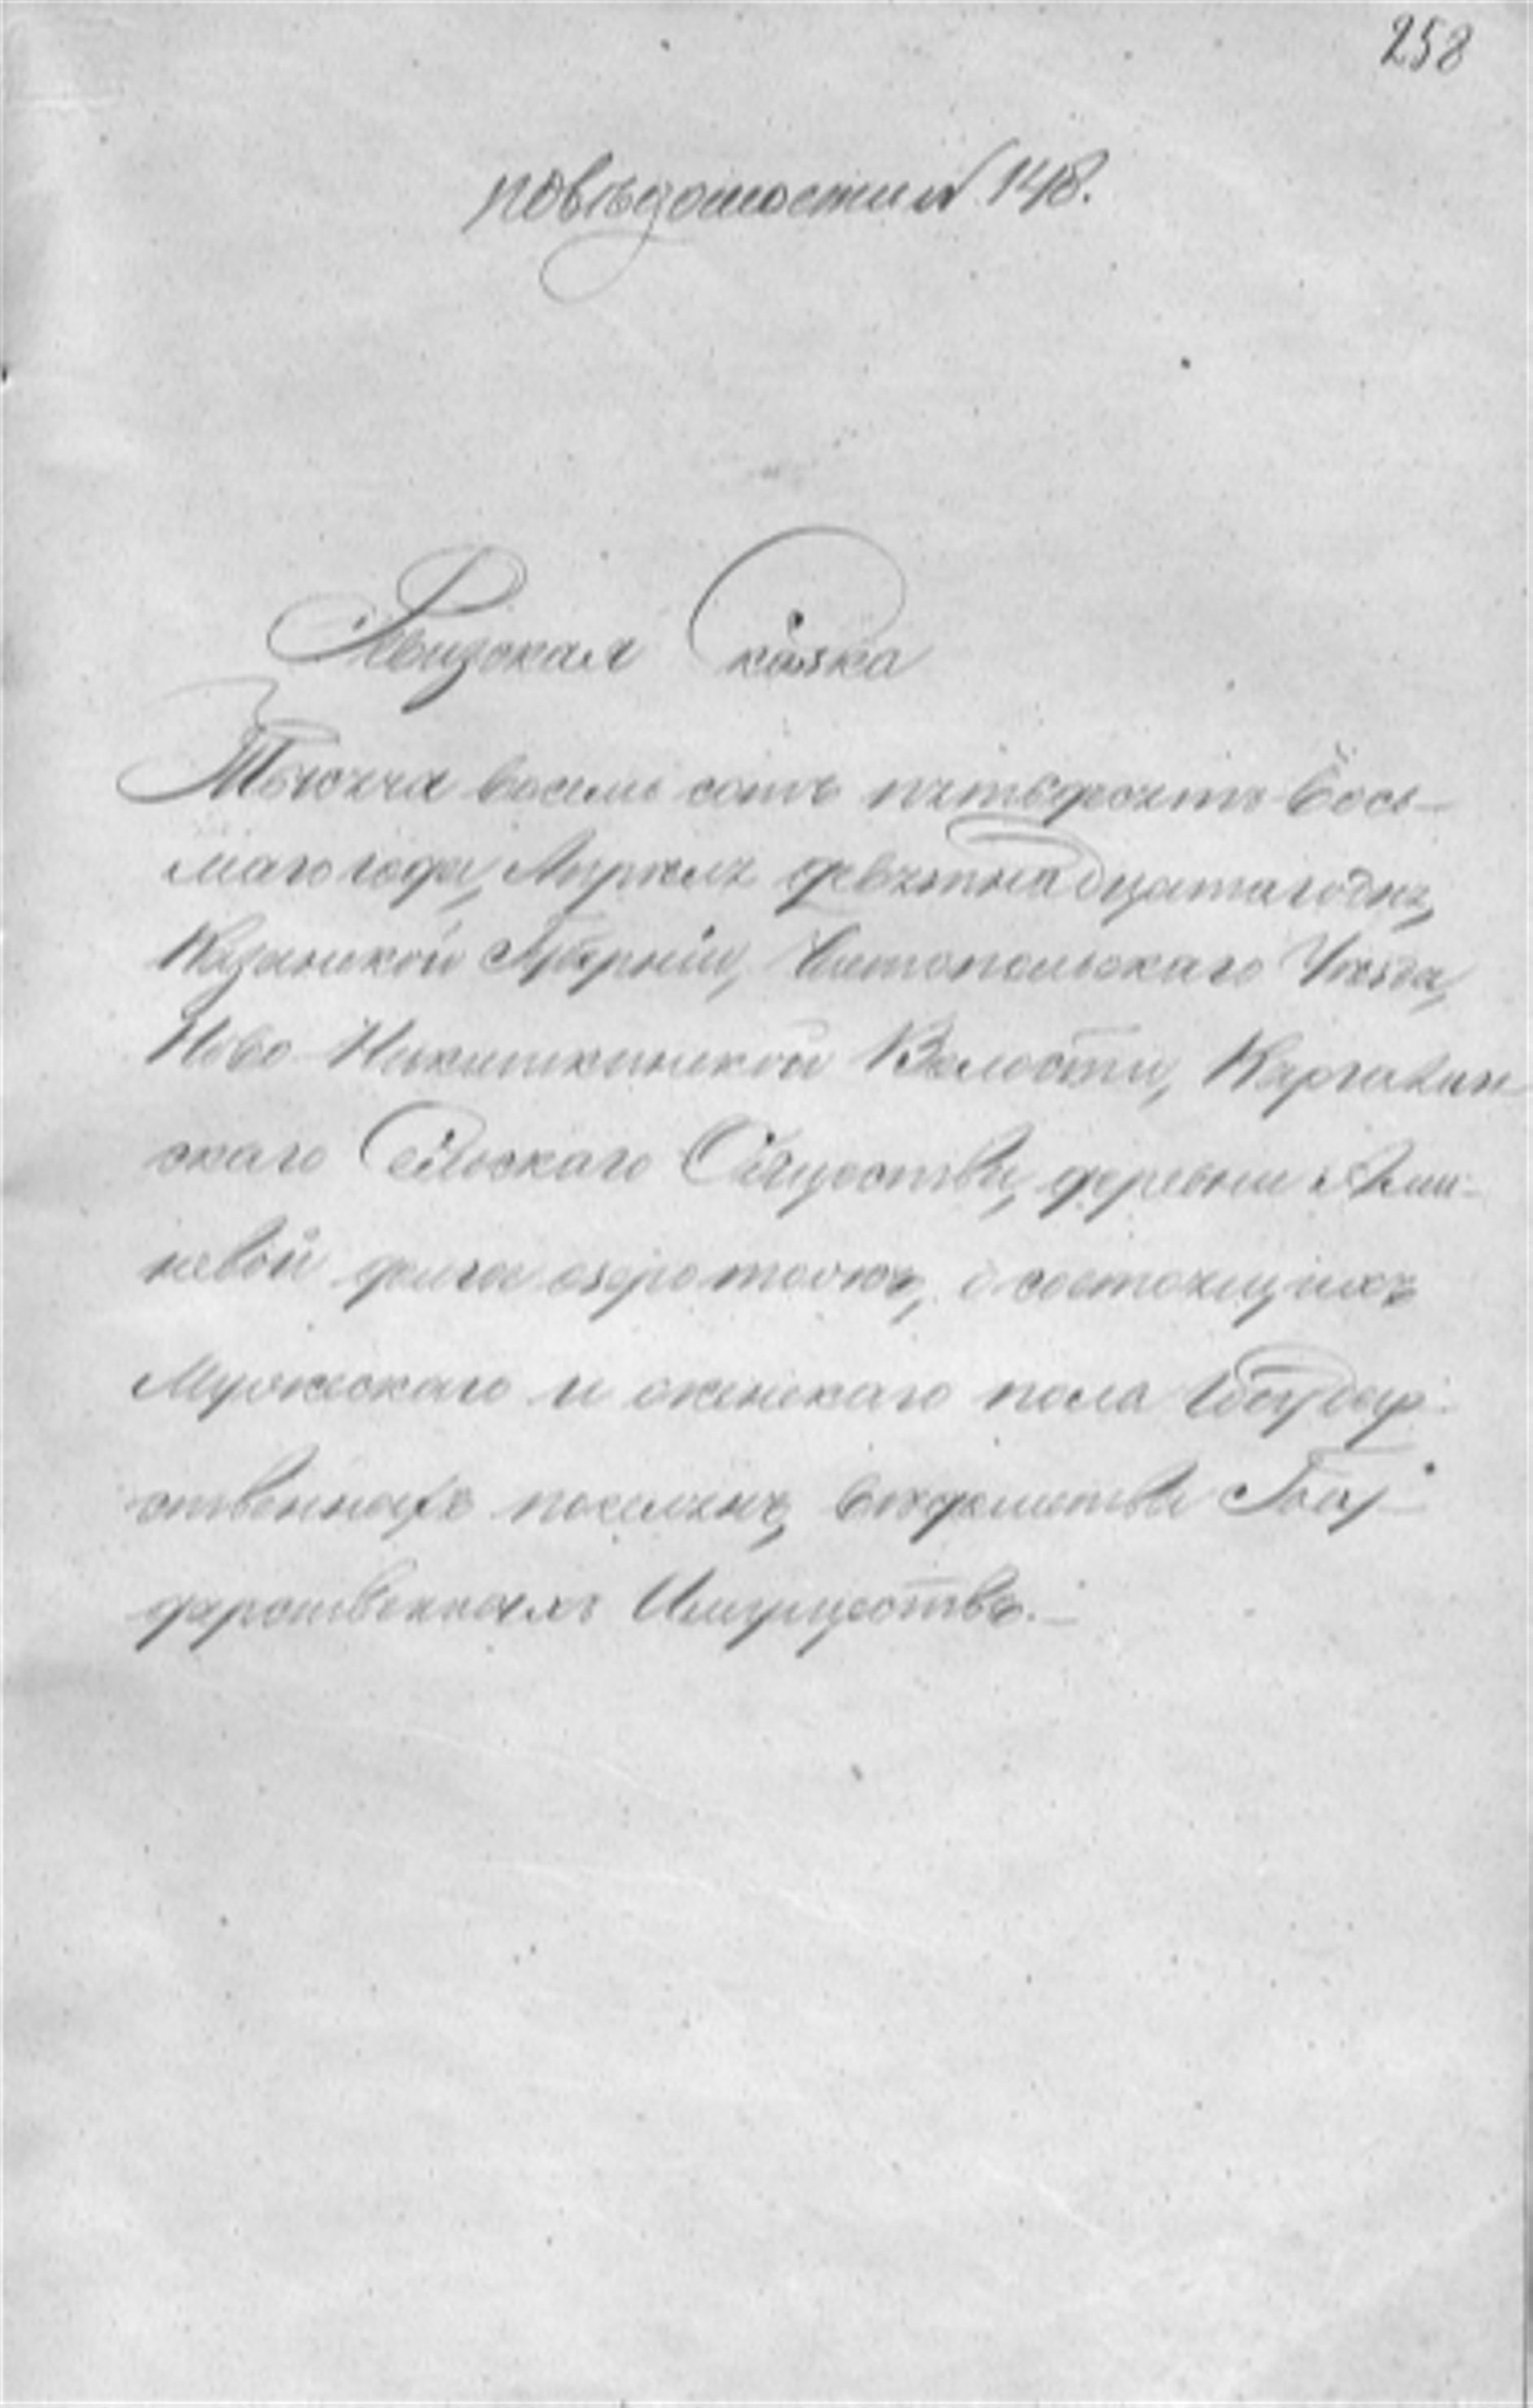 258
по вѣдомости № 148.
Ревизская Сказка
Тысяча восемь сотъ пятьдесятъ вось-
маго года, Апрѣля девятнадцатаго дня,
Казанской Губерніи, Чистопольскаго Уѣзда,
Ново-Никиткинской Волости, Каргалин-
скаго Сельскаго Общества, деревни
тожъ, о состоящихъ
Мужескаго и женскаго пола Государ-
ственныхъ поселянъ, вѣдомства Госу-
дарственныхъ Имуществъ.